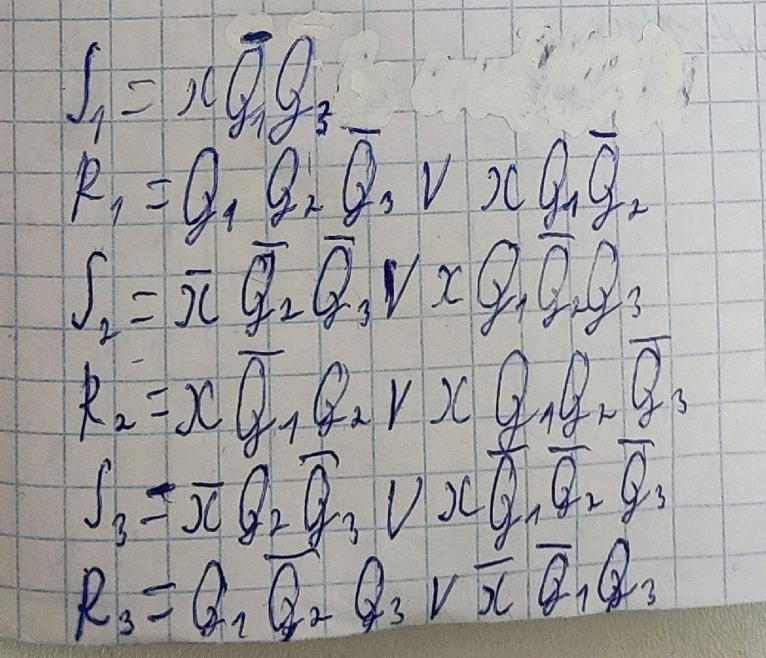 S₁ = xQ̄₁Q₃
R₁ = Q₁ Q₂ Q̄₃ V x Q₁ Q̄₂
S₂ = x̄ Q̄₂ Q̄₃ V x Q₁ Q̄₂ Q₃
R₂ = x Q̄₁ Q₂ V x Q₁ Q₂ Q̄₃
S₃ = x̄ Q₂ Q̄₃ V x Q̄₁ Q̄₂ Q̄₃
R₃ = Q₁ Q̄₂ Q₃ V x̄ Q̄₁ Q₃